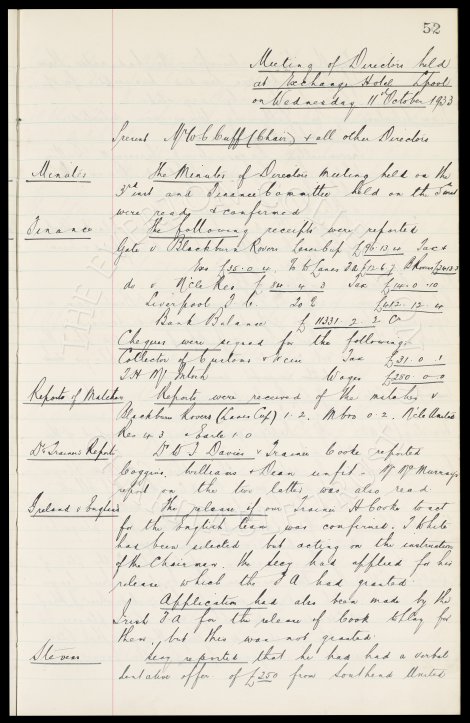 52
Meeting of Directors held
at Exchange Hotel L'pool
on Wednesday 11th October 1933
Present Mr W C Cuff (Chair) & all other Directors
Minutes The Minutes of Directors Meeting held on the
3rd inst and Finance Committee held on the 5th inst
were read & confirmed
Finance The following receipts were reported
Gate v Blackburn Rovers Lancs Cup £90.13.4 Tax &
£35.0.4
do v N'cle Res £ 84.4.3 Tax £14.0.10
Liverpool F.C. £412.12.4
Bank Balance £11331.2.2 Cr
Cheques were signed for the following:
Collector of Customs & Tax £31.0.1
Wages £250 0-0
Reports of Matches Reports were received of the matches v
Blackburn Rovers (Lancs Cup) 1-2. M'bro 0-2. N'cle United
Res 4-3 & Earle 1-0
Dr & Trainer's Reports Dr D J Davies & Trainer Cooke reported
Coggins, Williams & Dean unfit. Mr McMurray's
report on the two latter was also read
Ireland v England The release of our Trainer H Cooke to act
for the English team was confirmed. T White
had been selected but acting on the instruction
of the Chairman, the Secy had applied for his
release which the F A had granted
Application had also been made by the
Irish F A for the release of Cook to play for
them, but this was not granted.
Stevens Secy reported that he had had a verbal
tentative offer of £250 from Southend United